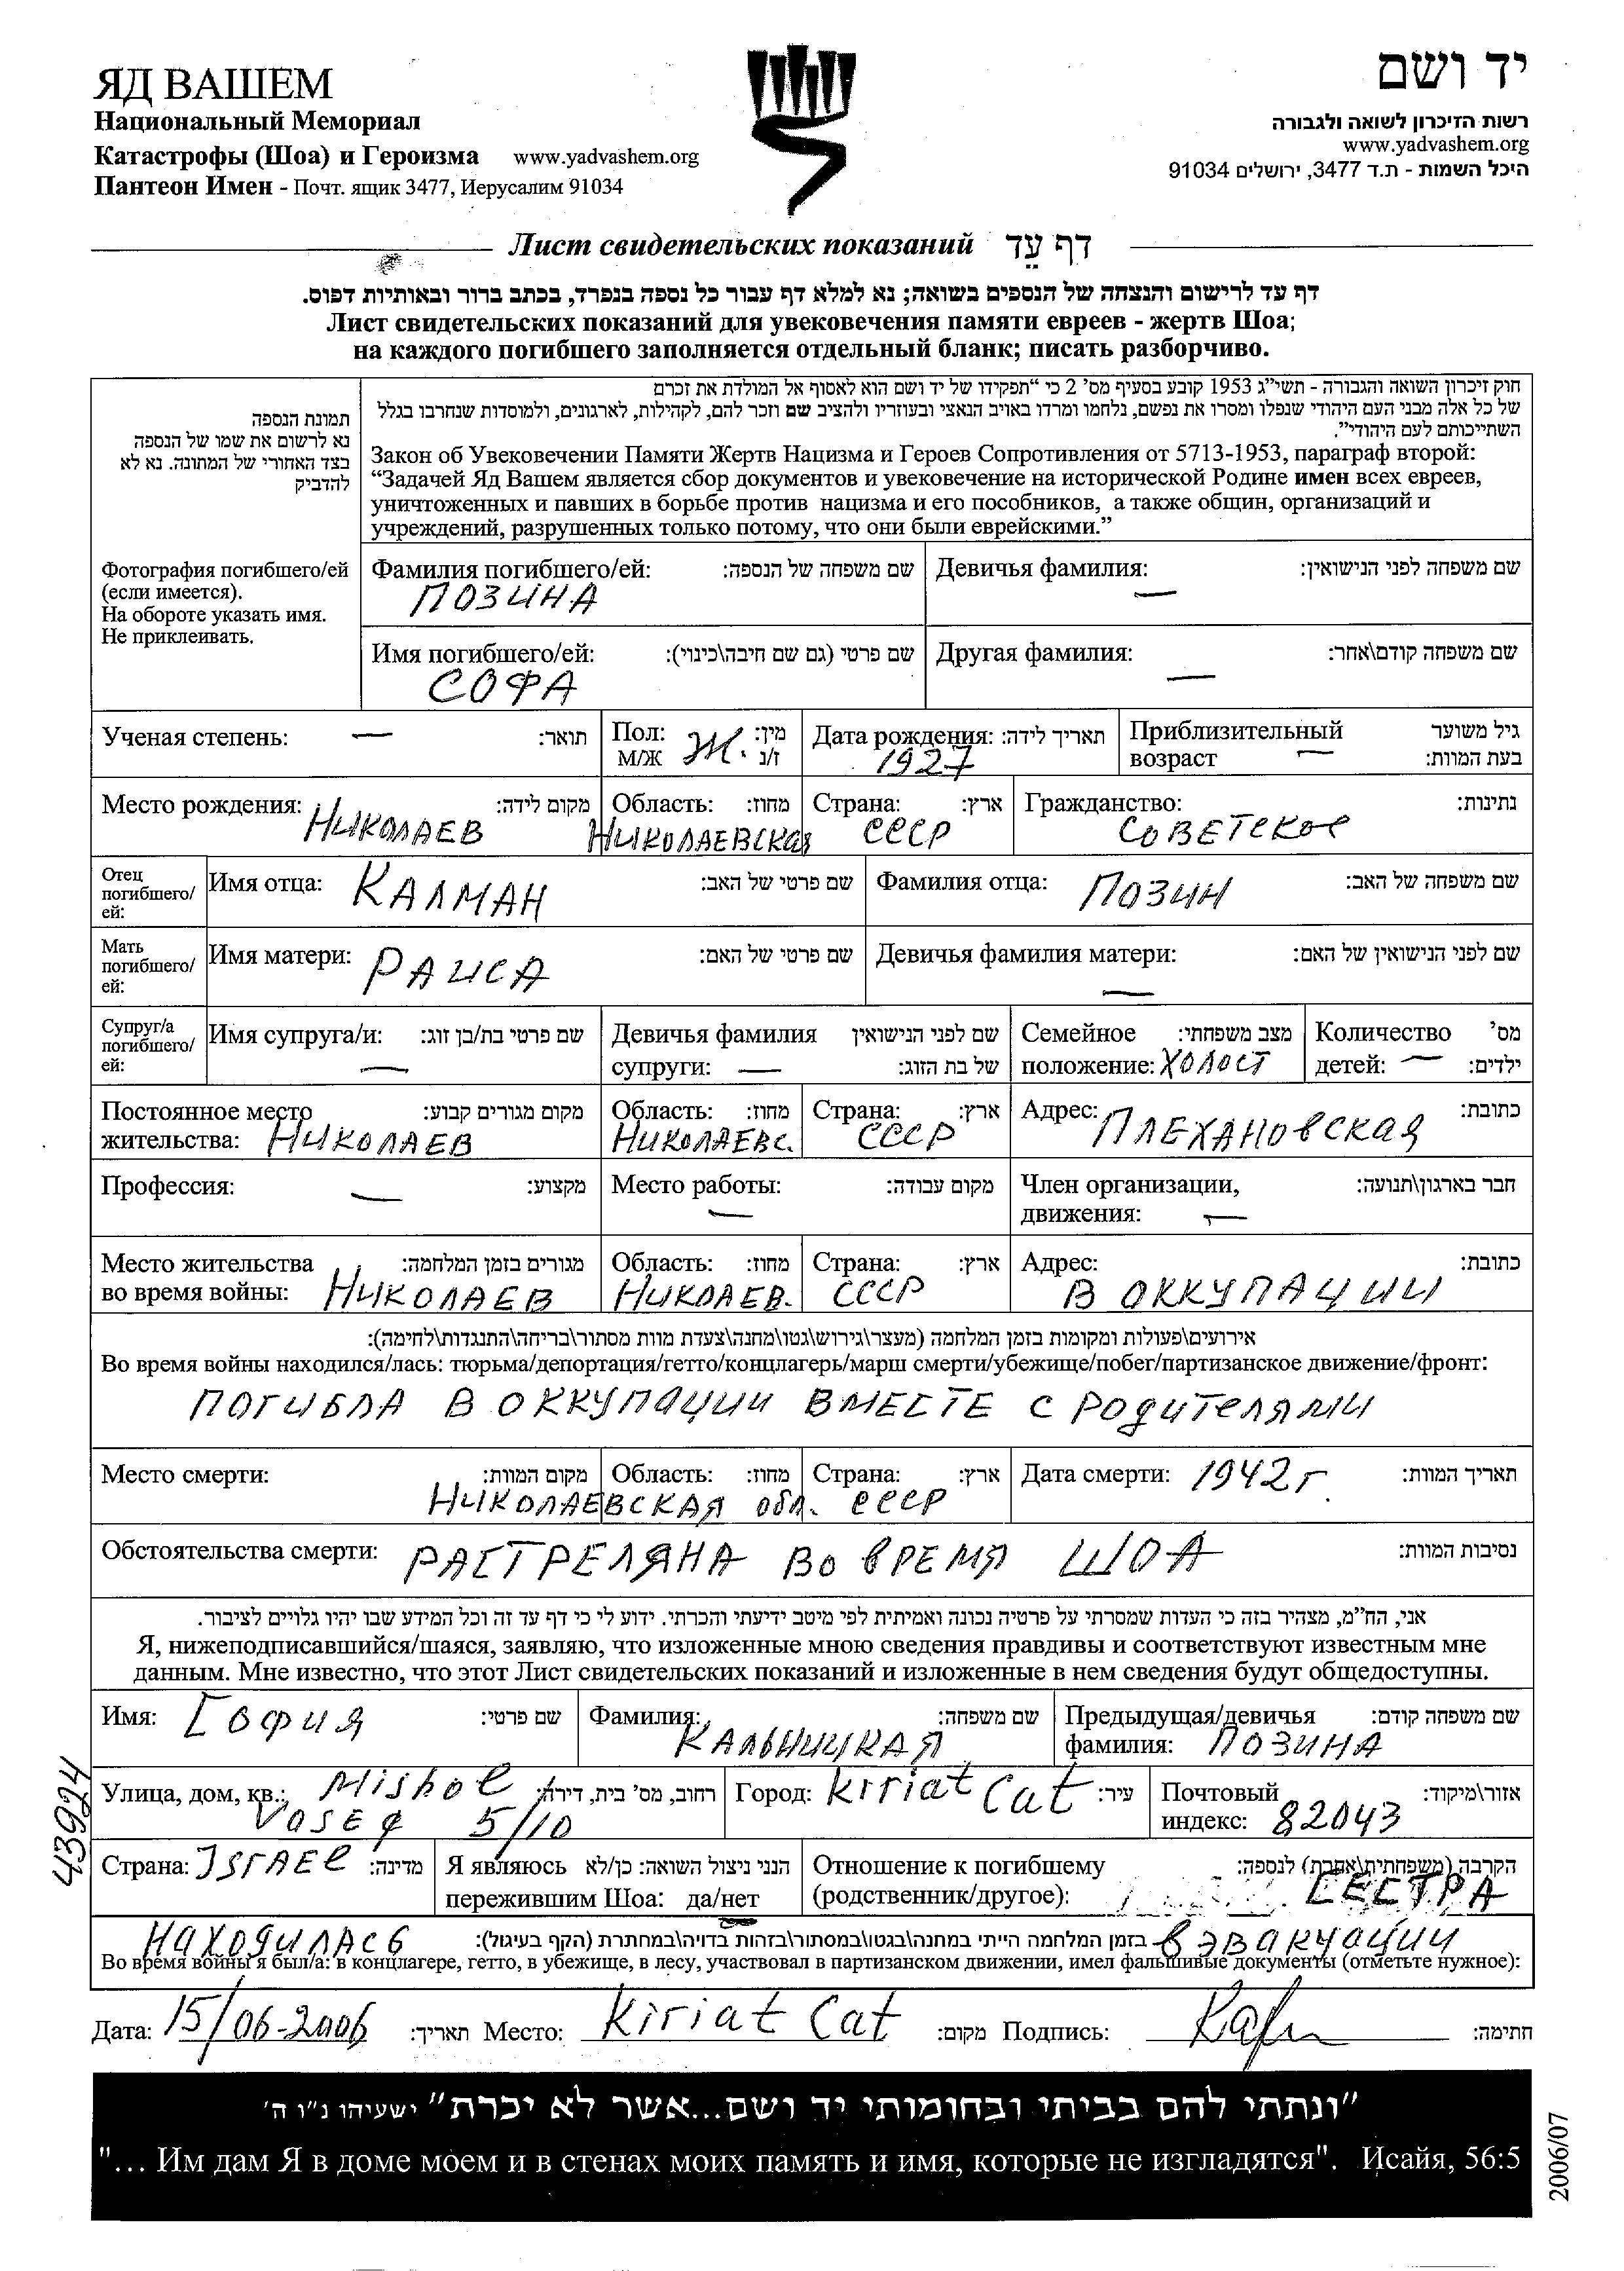 ЯД ВАШЕМ
Национальный Мемориал
Катастрофы (Шоа) и Героизма www.yadvashem.org
Пантеон Имен - Почт. ящик 3477, Иерусалим 91034
יד ושם
רשות הזיכרון לשואה ולגבורה
www.yadvashem.org
היכל השמות - ת.ד 3477, ירושלים 91034
Лист свидетельских показаний דף עֵד
דף עד לרישום והנצחה של הנספים בשואה; נא למלא דף עבור כל נספה בנפרד, בכתב ברור ובאותיות דפוס.
Лист свидетельских показаний для увековечения памяти евреев - жертв Шоа;
на каждого погибшего заполняется отдельный бланк; писать разборчиво.
תמונת הנספה
נא לרשום את שמו של הנספה
בצד האחורי של המתונה. נא לא
להדביק
Фотография погибшего/ей
(если имеется).
На обороте указать имя.
Не приклеивать.
חוק זיכרון השואה והגבורה - תשי"ג 1953 קובע בסעיף מס' 2 כי "תפקידו של יד ושם הוא לאסוף אל המולדת את זכרם
של כל אלה מבני העם היהודי שנפלו ומסרו את נפשם, נלחמו ומרדו באויב הנאצי ובעוזריו ולהציב שם וזכר להם, לקהילות, לארגונים, ולמוסדות שנחרבו בגלל
השתייכותם לעם היהודי".
Закон об Увековечении Памяти Жертв Нацизма и Героев Сопротивления от 5713-1953, параграф второй:
“Задачей Яд Вашем является сбор документов и увековечение на исторической Родине имен всех евреев,
уничтоженных и павших в борьбе против нацизма и его пособников, а также общин, организаций и
учреждений, разрушенных только потому, что они были еврейскими.”
Фамилия погибшего/ей: שם משפחה של הנספה: Девичья фамилия: שם משפחה לפני הנישואין:
ПОЗИНА —
Имя погибшего/ей: שם פרטי (גם שם חיבה\כינוי): Другая фамилия: שם משפחה קודם\אחר:
СОФА —
Ученая степень: — תואר: Пол: Ж. מין: Дата рождения: תאריך לידה: Приблизительный גיל משוער
М/Ж ז/נ 1927 возраст — בעת המוות:
Место рождения: מקום לידה: Область: מחוז: Страна: ארץ: Гражданство: נתינות:
НИКОЛАЕВ НИКОЛАЕВСКАЯ СССР СОВЕТСКОЕ
Отец
погибшего/
ей:
Имя отца: КАЛМАН שם פרטי של האב: Фамилия отца: ПОЗИН שם משפחה של האב:
Мать
погибшего/
ей:
Имя матери: РАИСА שם פרטי של האם: Девичья фамилия матери: — שם לפני הנישואין של האם:
Супруг/а
погибшего/
ей:
Имя супруга/и: — שם פרטי בת/בן זוג: Девичья фамилия שם לפני הנישואין Семейное מצב משפחתי: Количество מס'
супруги: — של בת הזוג: положение: ХОЛОСТ детей: — ילדים:
Постоянное место מקום מגורים קבוע: Область: מחוז: Страна: ארץ: Адрес: ПЛЕХАНОВСКАЯ כתובת:
жительства: НИКОЛАЕВ НИКОЛАЕВС. СССР
Профессия: — מקצוע: Место работы: מקום עבודה: Член организации, חבר בארגון\תנועה:
— движения: —
Место жительства מגורים בזמן המלחמה: Область: מחוז: Страна: ארץ: Адрес: כתובת:
во время войны: НИКОЛАЕВ НИКОЛАЕВ. СССР В ОККУПАЦИИ
אירועים\פעולות ומקומות בזמן המלחמה (מעצר\גירוש\גטו\מחנה\צעדת מוות מסתור\בריחה\התנגדות\לחימה):
Во время войны находился/лась: тюрьма/депортация/гетто/концлагерь/марш смерти/убежище/побег/партизанское движение/фронт:
ПОГИБЛА В ОККУПАЦИИ ВМЕСТЕ С РОДИТЕЛЯМИ
Место смерти: מקום המוות: Область: מחוז: Страна: ארץ: Дата смерти: 1942г. תאריך המוות:
НИКОЛАЕВСКАЯ обл. СССР
Обстоятельства смерти: РАСТРЕЛЯНА ВО ВРЕМЯ ШОА נסיבות המוות:
אני, הח"מ, מצהיר בזה כי העדות שמסרתי על פרטיה נכונה ואמיתית לפי מיטב ידיעתי והכרתי. ידוע לי כי דף עד זה וכל המידע שבו יהיו גלויים לציבור.
Я, нижеподписавшийся/шаяся, заявляю, что изложенные мною сведения правдивы и соответствуют известным мне
данным. Мне известно, что этот Лист свидетельских показаний и изложенные в нем сведения будут общедоступны.
Имя: СОФИЯ שם פרטי: Фамилия: שם משפחה: Предыдущая/девичья שם משפחה קודם:
КАЛЬНИЦКАЯ фамилия: ПОЗИНА
Улица, дом, кв.: Mishol רחוב, מס' בית, דירה: Город: Kiriat Cat עיר: Почтовый אזור\מיקוד:
5/10 индекс: 82043
Страна: ISRAEL מדינה: Я являюсь הנני ניצול השואה: כן/לא Отношение к погибшему הקרבה (משפחתית\אחרת) לנספה:
пережившим Шоа: да/нет (родственник/другое): СЕСТРА
НАХОДИЛАСЬ בזמן המלחמה הייתי במחנה\בגטו\במסתור\בזהות בדויה\במחתרת (הקף בעיגול): В ЭВАКУАЦИИ
Во время войны я был/а: в концлагере, гетто, в убежище, в лесу, участвовал в партизанском движении, имел фальшивые документы (отметьте нужное):
Дата: 15/06-2006 תאריך: Место: Kiriat Cat מקום: Подпись: חתימה:
"ונתתי להם בביתי ובחומותי יד ושם...אשר לא יכרת" ישעיהו נ"ו ה'
"... Им дам Я в доме моем и в стенах моих память и имя, которые не изгладятся". Исайя, 56:5
43924
2006/07